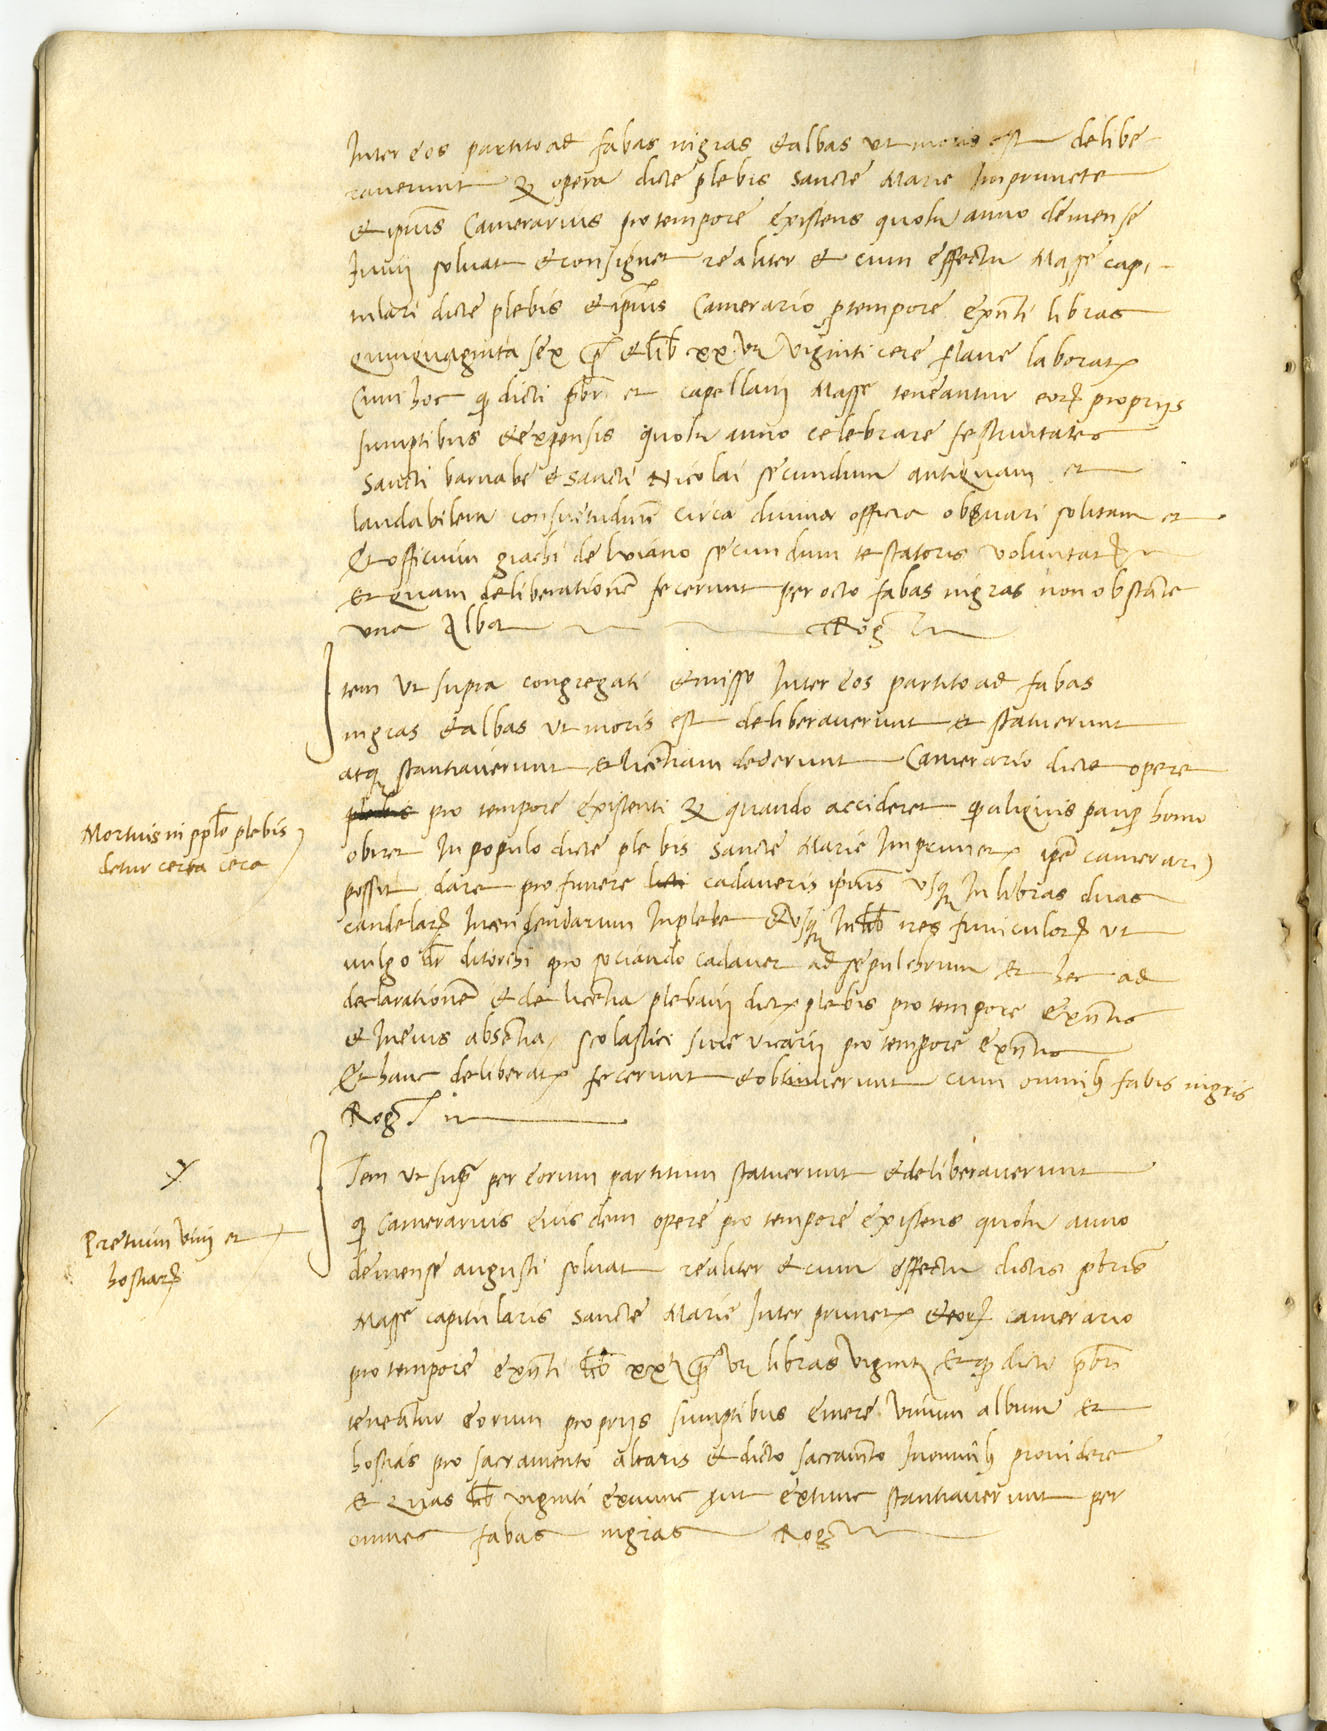 Inter eos partito ad fabas nigras et albas ut moris est delibe
raverunt q opera dicte plebis Sancte Marie Imprunete
et ipius Camerarius pro tempore existens quolz anno de mense
Junij solvat et consignet realiter et cum effectu Masse capi-
tulari dicte plebis et ipius Camerario p tempore exnti libras
quinquaginta sex et lib xx vz viginti cere laborat
Cum hoc q dicti pbri et capellani Masse teneantur eor proprijs
sumptibus et expensis quolz anno celebrare festivitates
Sancti barnabe et Sancti Nicolai secundum antiquam et
laudabilem consuetudine circa divina officia observari solitam et
Et officium giachi de secundum testatoris voluntat
et quam deliberatione fecerunt per octo fabas nigras non obstate
una alba Rog
Item ut supra congregati et misso Inter eos partito ad fabas
nigras et albas ut moris est deliberaverunt et statuerunt
atq stantiaverunt et licentiam dederunt Camerario dicte opere
plebis pro tempore existenti q quando accideret q aliquis paup homo
Mortuis in pplo plebis
detur certa cera
obiret In populo dicte plebis Sancte Marie Imprunet ipe camerari
possit dare pro funere cadaveris ipius usq In libras duas
candelar Incendendarum In plebe et usq In lib tres funiculor ut
vulgo dr di torchi pro sociando cadaver ad sepulchrum et hec ad
declaratione et de licentia plebani dict plebis pro tempore exntis
et In eius absentia scolastici sive vicarij pro tempore exntis
Et hanc deliberat fecerunt et obtinuerunt cum omnib fabis nigris
Rog
Item ut supra per eorum partitum statuerunt et deliberaverunt
q Camerarius eiusdem opere pro tempore existens quolz anno
Pretium vini et
hostiar
de mense augusti solvat realiter et cum effectu dictis pbris
Masse capitularis Sancte Marie Inter prunet et eor camerario
pro tempore exnti lib xx vz libras viginti et q dicti pbri
teneantur eorum proprijs sumptibus emere vinum album et
hostias pro sacramento altaris et dicto sacramto In omnib providere
et quas lib viginti exnunc put extunc stantiaverunt per
omnes fabas nigras Rog